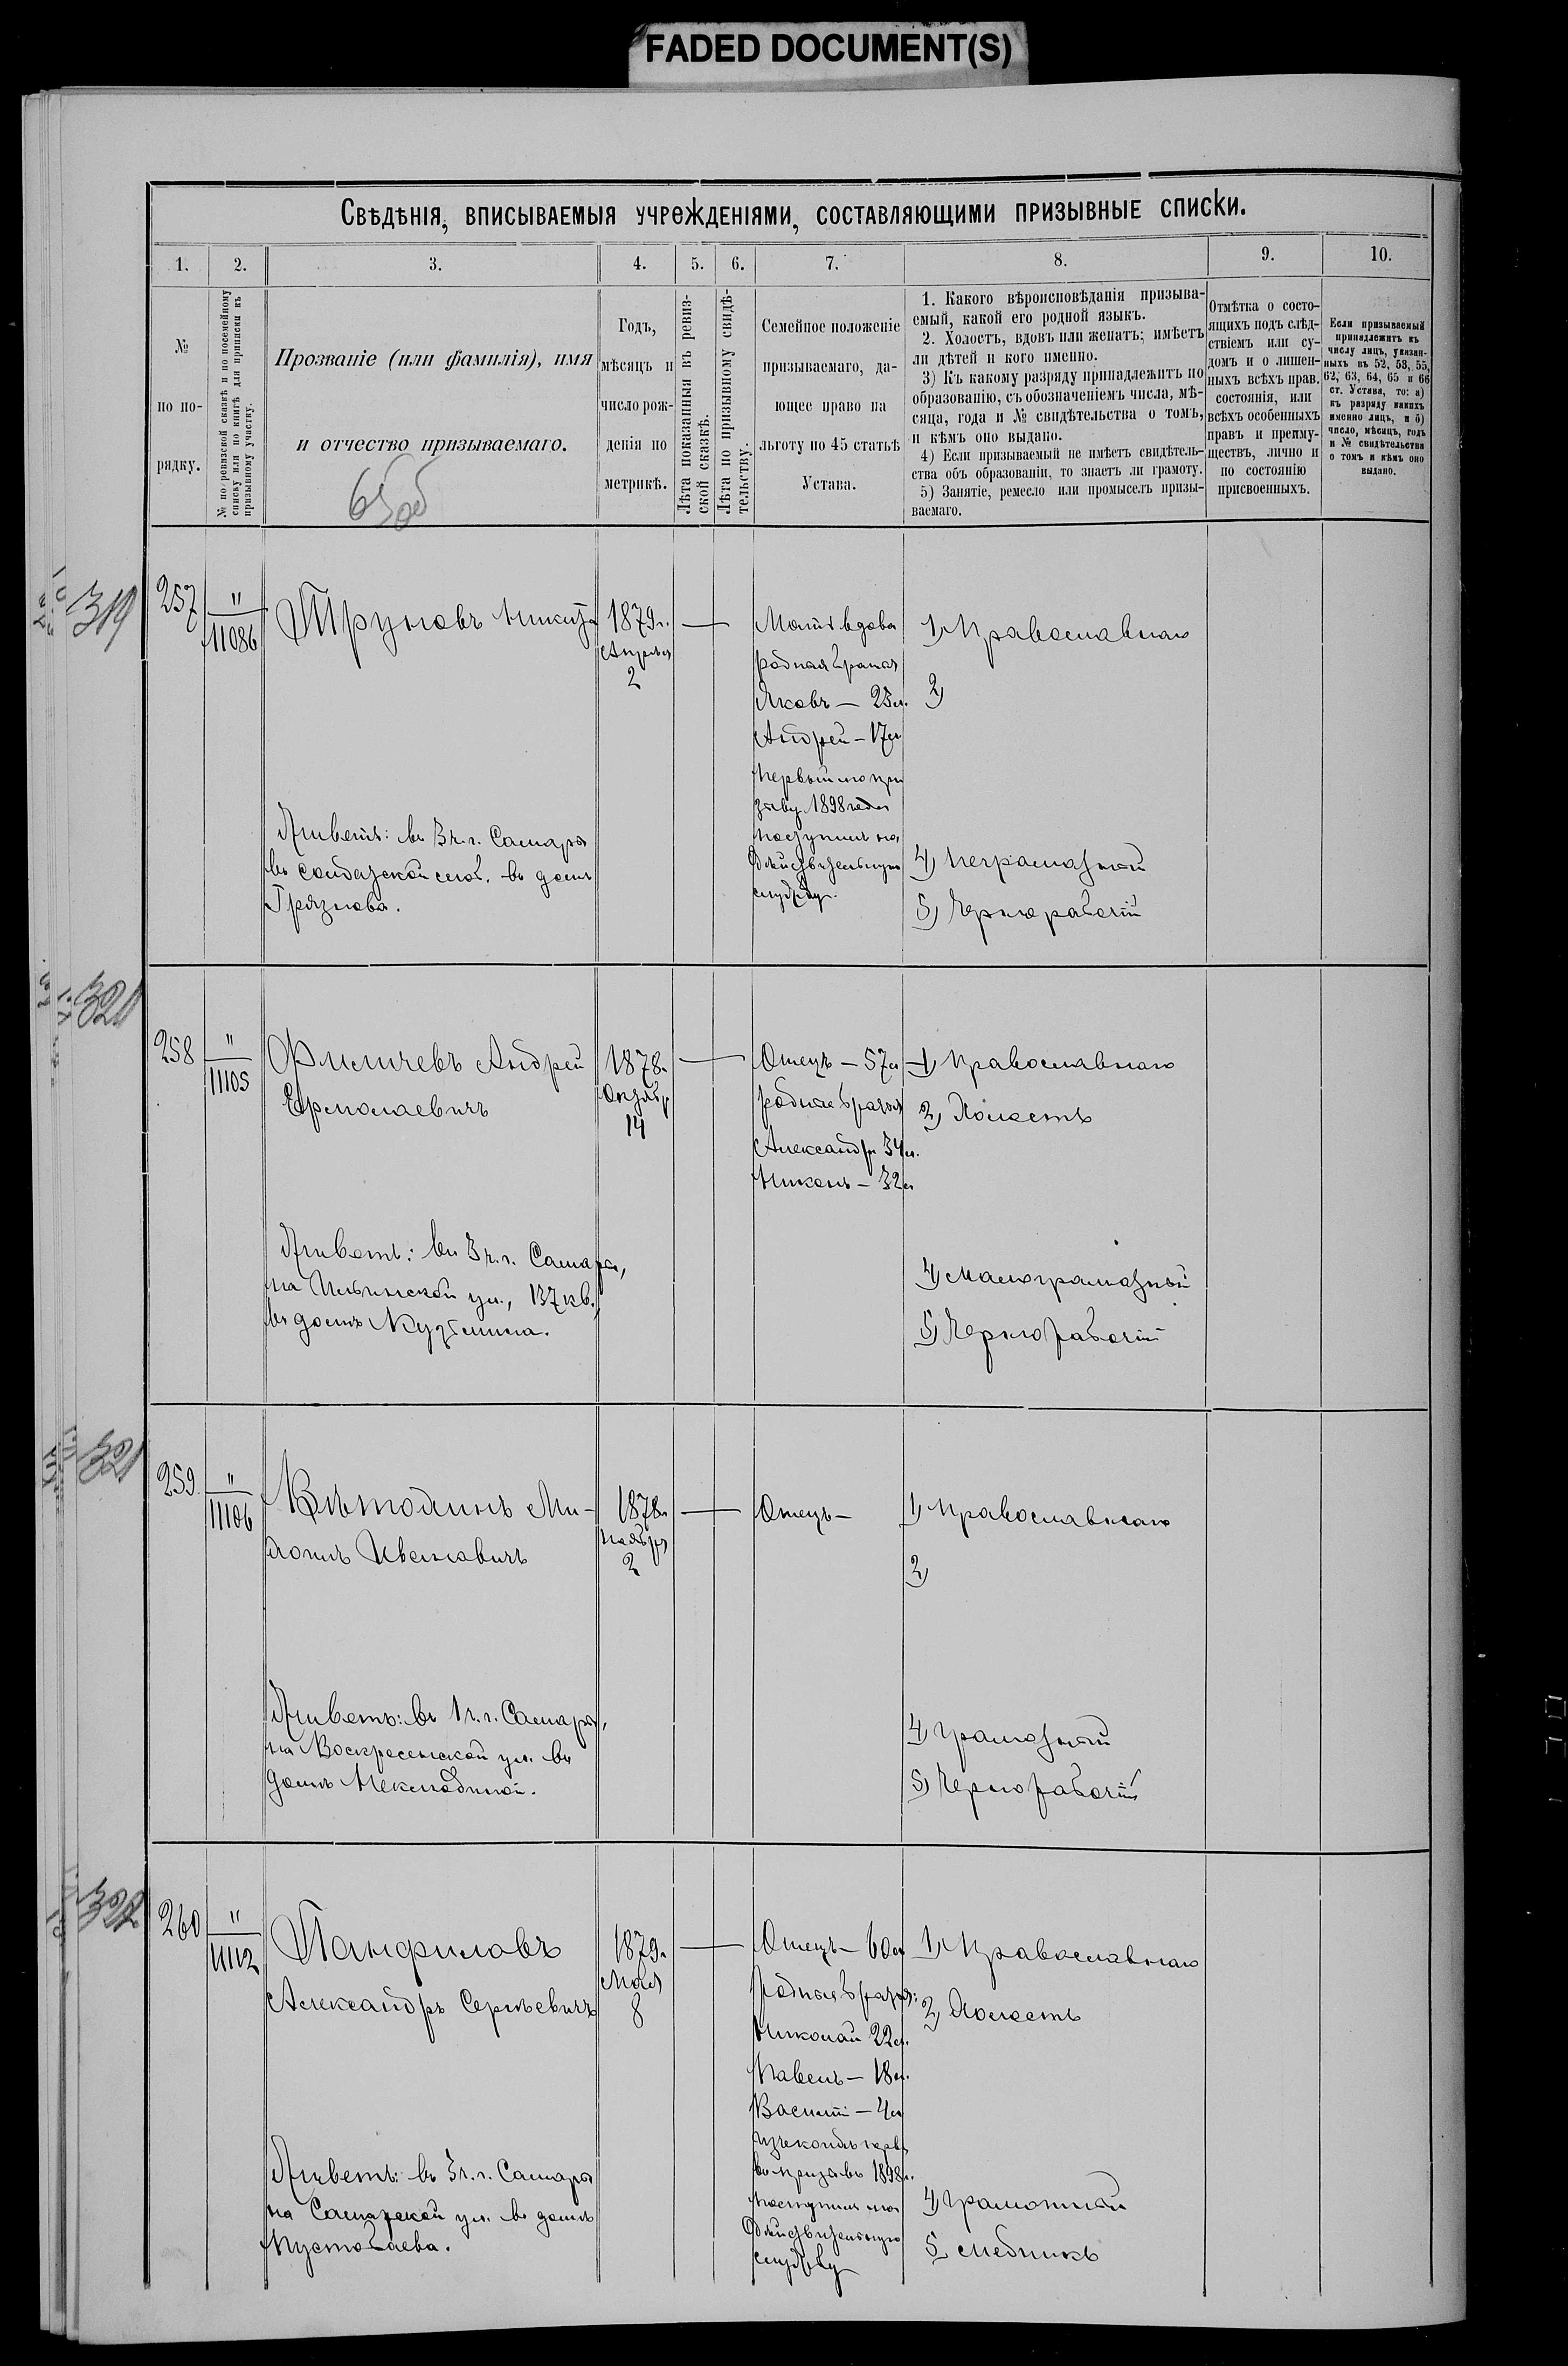 FADED DOCUMENT(S)
Свѣдѣнія, вписываемыя учрежденіями, составляющими призывные списки.
1. 2. 3. 4. 5. 6. 7. 8. 9. 10.
№
по по-
рядку.
№ по ревизской сказкѣ и по посемейному
списку или по книгѣ для приписки къ
призывному участку.
Прозваніе (или фамилія), имя
и отчество призываемаго.
65об
Годъ,
мѣсяцъ и
число рож-
денія по
метрикѣ.
Лѣта показанныя въ ревиз-
ской сказкѣ.
Лѣта по призывному свидѣ-
тельству.
Семейное положеніе
призываемаго, да-
ющее право на
льготу по 45 статьѣ
Устава.
1. Какого вѣроисповѣданія призыва-
емый, какой его родной языкъ.
2. Холостъ, вдовъ или женатъ; имѣетъ
ли дѣтей и кого именно.
3) Къ какому разряду принадлежитъ по
образованію, съ обозначеніемъ числа, мѣ-
сяца, года и № свидѣтельства о томъ,
и кѣмъ оно выдано.
4) Если призываемый не имѣетъ свидѣтель-
ства объ образованіи, то знаетъ ли грамоту.
5) Занятіе, ремесло или промыселъ призы-
ваемаго.
Отмѣтка о состо-
ящихъ подъ слѣд-
ствіемъ или су-
домъ и о лишен-
ныхъ всѣхъ прав.
состоянія, или
всѣхъ особенныхъ
правъ и преиму-
ществъ, лично и
по состоянію
присвоенныхъ.
Если призываемый
принадлежитъ къ
числу лицъ, указан-
ныхъ въ 52, 53, 55,
62, 63, 64, 65 и 66
ст. Устава, то: а)
къ разряду какихъ
именно лицъ, и б)
число, мѣсяцъ, годъ
и № свидѣтельства
о томъ и кѣмъ оно
выдано.
319
257
"
11086
Труновъ Никита
1879г.
Апрѣля
2
Мать вдова
родная братья
Яковъ — 23л.
Андрей — 17л
первый по при
зыву 1898 года
поступилъ на
дѣйствительную
службу.
1) Православнаго
2)
4) Неграмотный
5) Чернорабочій
Живетъ: въ 3 ч. г. Самары
въ солдатской слоб. въ домѣ
Грязнова.
320
258
"
11105
Филичевъ Андрей
Ермолаевичъ
1878г.
Октябр
14
Отецъ — 57л
родные братья
Александръ 34л.
Никонъ — 32л
1) Православнаго
2) Холостъ
4) Малограмотный
5) Чернорабочій
Живетъ: въ 3 ч. г. Самары,
на Ильинской ул., 137 кв.,
въ домѣ Кузьмина.
321
259
"
11106
Ми-
Ивановичъ
1878г.
Ноября
2
Отецъ —
1) Православнаго
2)
4) Грамотный
5) Чернорабочій
Живетъ: въ 1 ч. г. Самары,
на Воскресенской ул. въ
домѣ
322
260
"
11112
Панфиловъ
Александръ Сергѣевичъ
1879г.
Мая
8
Отецъ — 60л
родные братья:
Николай 22л.
Павелъ — 18л.
Василій — 4л
изъ коихъ перв.
въ призывъ 1898г.
поступилъ на
дѣйствительную
службу
1) Православнаго
2) Холостъ
4) Грамотный
5 Мѣдникъ
Живетъ: въ 3 ч. г. Самары
на Самарской ул. въ домѣ
Пустобаева.